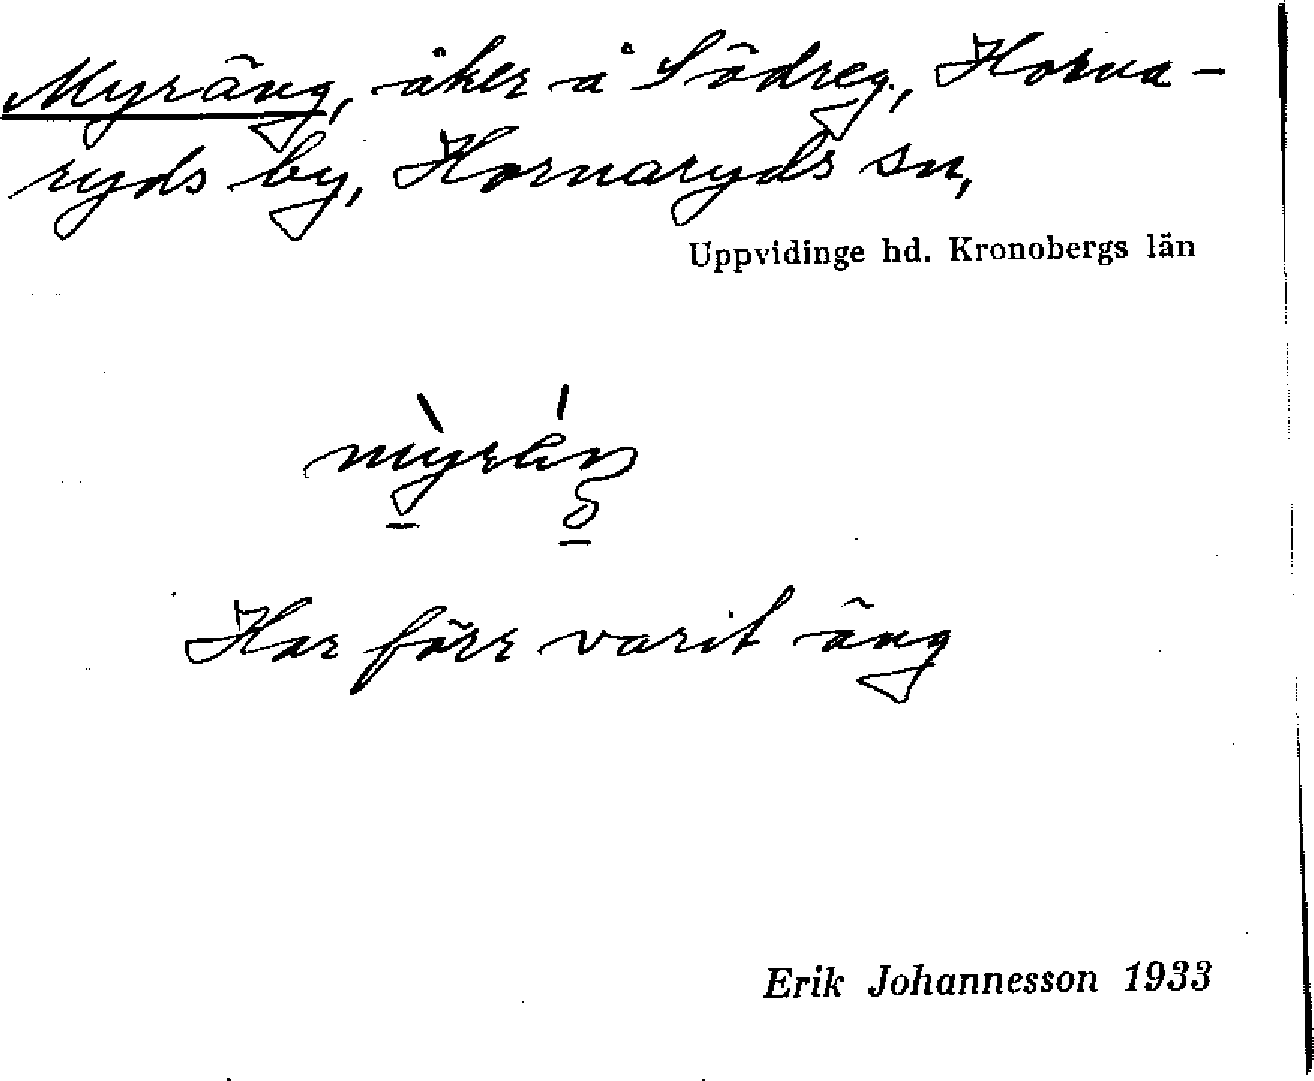 Myräng, åker å Södreg., Horna-
ryds by, Hornaryds sn,
Uppvidinge hd. Kronobergs län
Har förr varit äng
Erik Johannesson 1933